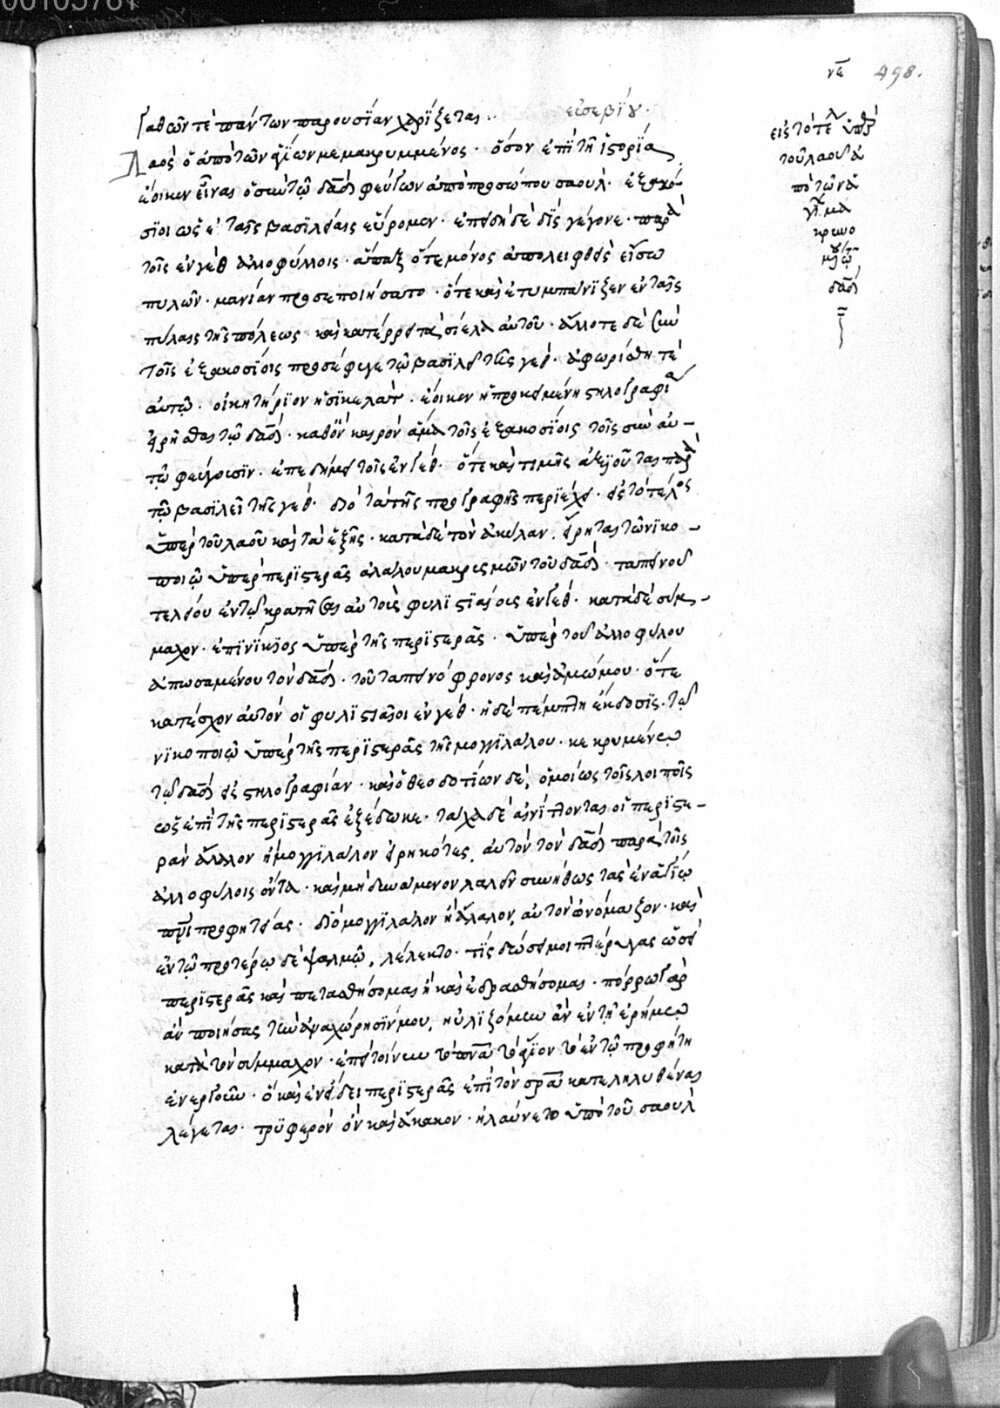 00105781
νε 498.
γαθῶν τὲ πάντων παρουσίαν χαρίζεται·
εὐσεβίου·
Λαὸς ὁ ἀπὸ τῶν ἁγίων μεμακρυμμένος· ὅσον ἐπὶ τῆ ἱστορία
ἔοικεν εἶναι ὁ σὺν τῶ δαδ φεύγων ἀπὸ προσώπου σαουλ· ἑξακό
σιοι ὡς ἐν ταῖς βασιλείαις εὕρομεν· ἐπειδὴ δὲ δὶς γέγονε παρὰ
τοῖς ἐν γὲθ ἀλλοφύλοις· ἅπαξ ὅτε μόνος ἀπολειφθεὶς εἴσω
πυλῶν· μανίαν προσεποιήσατο· ὅτε καὶ ἐτυμπάνιζεν ἐν ταῖς
πύλαις τῆς πόλεως καὶ κατέρρει τὰ σίελα αὐτοῦ· ἄλλοτε δὲ σὺν
τοῖς ἑξακοσίοις προσέφυγε τῶ βασιλεῖ τῆς γέθ· ἀφωρίσθη τὲ
αὐτῶ· οἰκητήριον ἡ σικελάγ· ἔοικεν ἡ προκειμένη στηλογραφία
εἰρῆσθαι τῶ δαδ· καθ' ὃν καιρὸν ἅμα τοῖς ἑξακοσίοις τοῖς σὺν αὐ-
τῶ φεύγουσιν· ἐπεδήμει τοῖς ἐν γέθ· ὅτε καὶ τιμῆς ἀξιοῦται παρὰ
τῶ βασιλεῖ τῆς γέθ· διὸ τὰ τῆς προγραφῆς περιέχει· εἰς τὸ τέλος
ὑπὲρ τοῦ λαοῦ καὶ τὰ ἑξῆς· κατὰ δὲ τὸν ἀκύλαν· εἴρηται τῶ νικο-
ποιῶ ὑπὲρ περιστερᾶς ἀλάλου μακρυσμῶν τοῦ δαδ· ταπεινοῦ
τελείου ἐν τῶ κρατῆσαι αὐτοὺς φυλιστιαίους ἐν γέθ· κατὰ δὲ σύμ-
μαχον· ἐπινίκιος ὑπὲρ τῆς περιστερᾶς· ὑπὲρ τοῦ ἀλλοφύλου
ἀπωσαμένου τὸν δαδ· τοῦ ταπεινόφρονος καὶ ἀμώμου· ὅτε
κατέσχον αὐτὸν οἱ φυλιστιαῖοι ἐν γέθ· ἡ δὲ πέμπτη ἔκδοσις· τῶ
νικοποιῶ ὑπὲρ τῆς περιστερᾶς τῆς μογγιλάλου· κεκρυμένω
τῶ δαδ εἰς στηλογραφίαν· καὶ ὁ θεοδοτίων δὲ, ὁμοίως τοῖς λοιποῖς
ὡς ἐπὶ τῆς περιστερᾶς ἐξέδωκε· τάχα δὲ αἰνίττονται οἱ περιστε-
ρὰν ἄλαλον ἢ μογγιλάλον εἰρηκότες, αὐτὸν τὸν δαδ παρὰ τοῖς
ἀλλοφύλοις ὄντα· καὶ μὴ δυνάμενον λαλεῖν συνήθως τὰς ἐν ἁγίω
πνι προφητείας· διὸ μογγιλάλον ἢ ἄλαλον, αὐτὸν ὀνόμαζον· καὶ
ἐν τῶ προτέρω δὲ ψαλμῶ, λέλεκτο· τίς δώσει μοι πτέρυγας ὡσεὶ
περιστερᾶς καὶ πετασθήσομαι ἢ καὶ ἑδρασθήσομαι· πόρρω γὰρ
ἂν ποιήσας τὴν ἀναχώρησίν μου, ηὐλιζόμην ἂν ἐν τῆ ἐρήμω
κατὰ τὸν σύμμαχον· ἐπεὶ τοίνυν τὸ πνα τὸ ἅγιον τὸ ἐν τῶ προφήτη
ἐνεργοῦν· ὃ καὶ ἐν εἴδει περιστερᾶς ἐπὶ τὸν σρα κατεληλυθέναι
λέγεται· τρυφερὸν ὂν καὶ ἄκακον· ἠλαύνετο ὑπὸ τοῦ σαουλ
εἰς τὸ τέλ ὑπὲρ
τοῦ λαοῦ ἀ
πὸ τῶν ἁ
γί μα
κρυμ
μ τῶ
δαδ